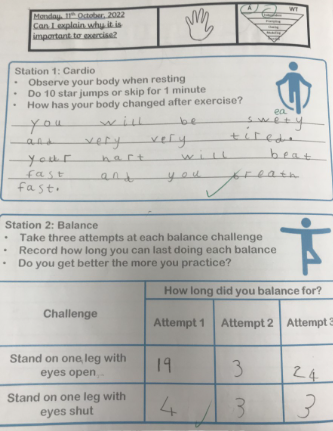 Monday, 11th October, 2022
Can I explain why it is
important to exercise?
A C WT
Station 1: Cardio
• Observe your body when resting
• Do 10 star jumps or skip for 1 minute
• How has your body changed after exercise?
ea
You will be swety
and very very tired.
your hart will beat
fast and you breath
fast.
Station 2: Balance
• Take three attempts at each balance challenge
• Record how long you can last doing each balance
• Do you get better the more you practice?
How long did you balance for?
Challenge Attempt 1 Attempt 2 Attempt 3
Stand on one leg with
eyes open 19 3 24
Stand on one leg with
eyes shut 4 3 3